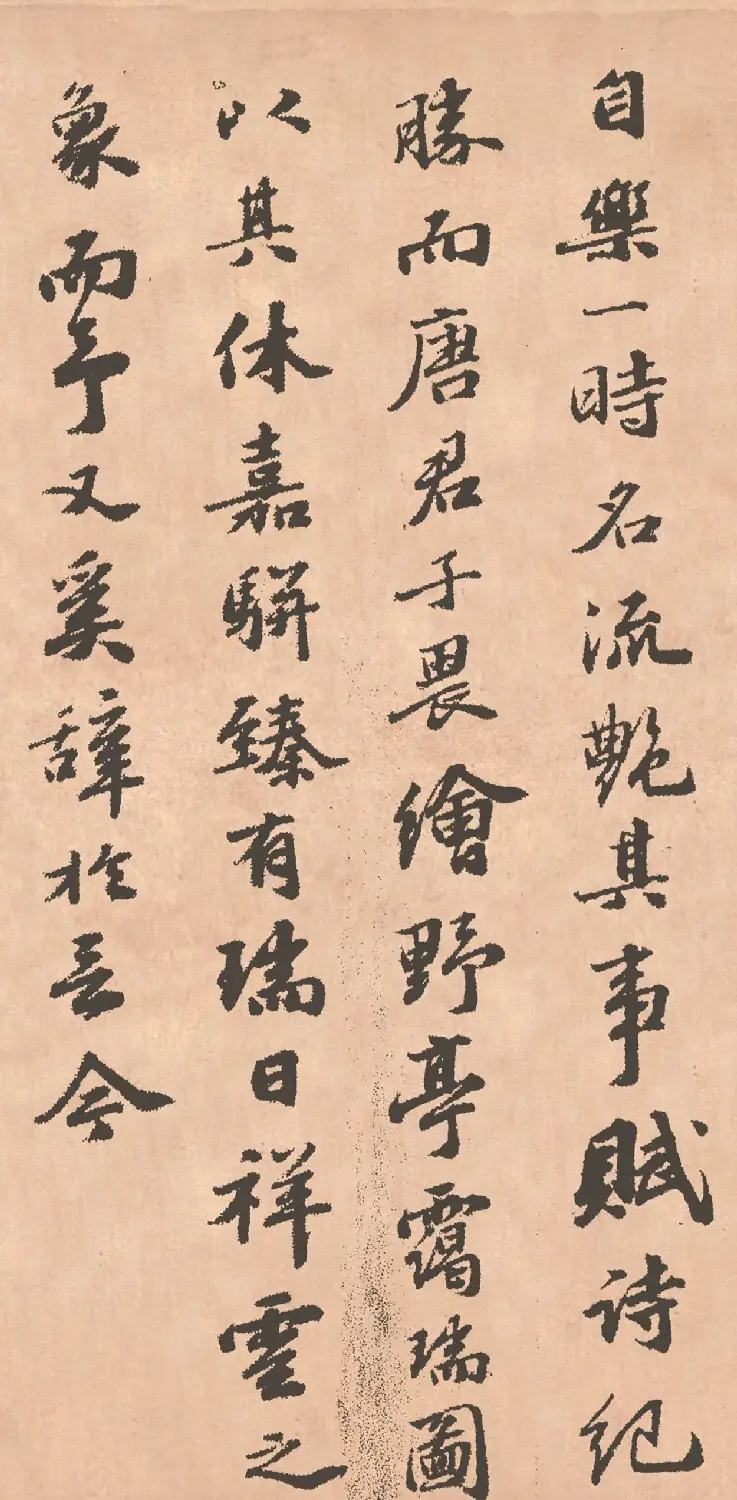 自樂一時名流艶其事賦詩紀
勝而唐君子畏繪野亭靄瑞圖
以其休嘉駢臻有瑞日祥雲之
象而予又奚辭於言今